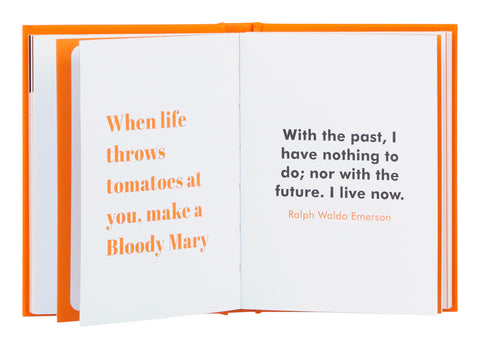 When life
throws
tomatoes at
you, make a
Bloody Mary
With the past, I
have nothing to
do; nor with the
future. I live now.
Ralph Waldo Emerson